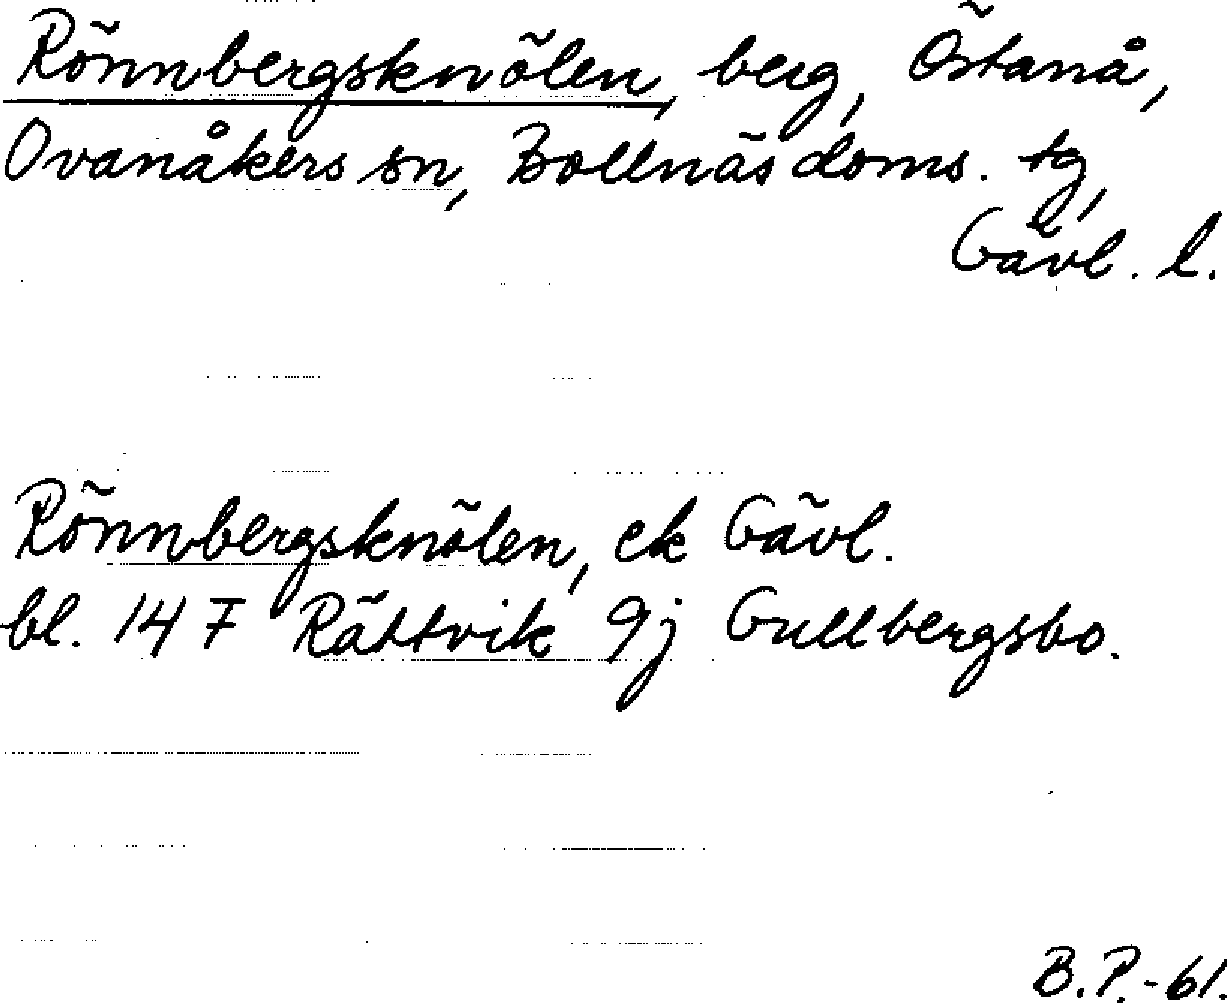 Rönnbergsknölen, berg, Östanå,
Ovanåkers sn, Bollnäs doms. tg,
Gävl. l.
Rönnbergsknölen, ek Gävl.
bl. 147 Rättvik 9j Gullbergsbo.
B.P.-61.